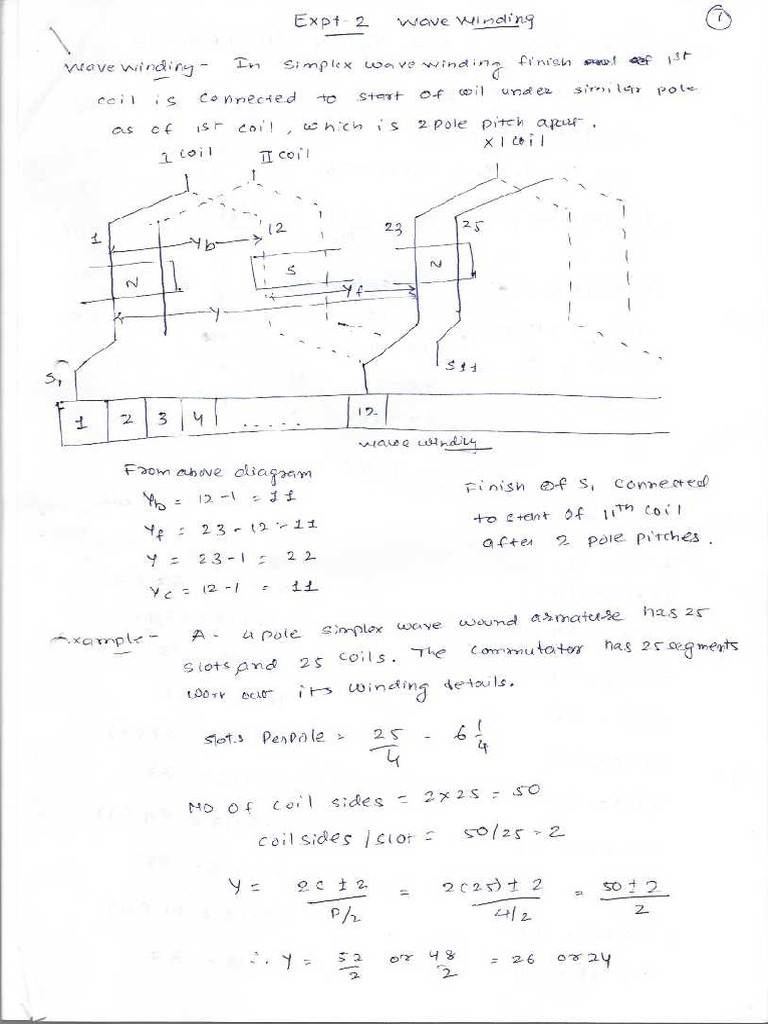 Expt-2 Wave Winding
1
Wave Winding - In simplex wave winding finish of 1st
coil is connected to start of coil under similar pole
as of 1st coil, which is 2 pole pitch apart.
I coil II coil XI coil
1 12 23 25
Yb
N S N
Yf
Y
S1 S11
1 2 3 4 ..... 12
Wave winding
From above diagram
Yb = 12-1 = 11
Yf = 23-12 = 11
Y = 23-1 = 22
Yc = 12-1 = 11
Finish of S1 connected
to start of 11th coil
after 2 pole pitches.
Example - A 4 pole simplex wave wound armature has 25
slots and 25 coils. The commutator has 25 segments
Work out its winding details.
Slots Per pole = 25/4 - 6 1/4
No of coil sides = 2×25 = 50
coil sides / slot = 50/25 = 2
Y = 2c ± 2 / P/2 = 2(25) ± 2 / 4/2 = 50 ± 2 / 2
∴ Y = 52/2 or 48/2 = 26 or 24